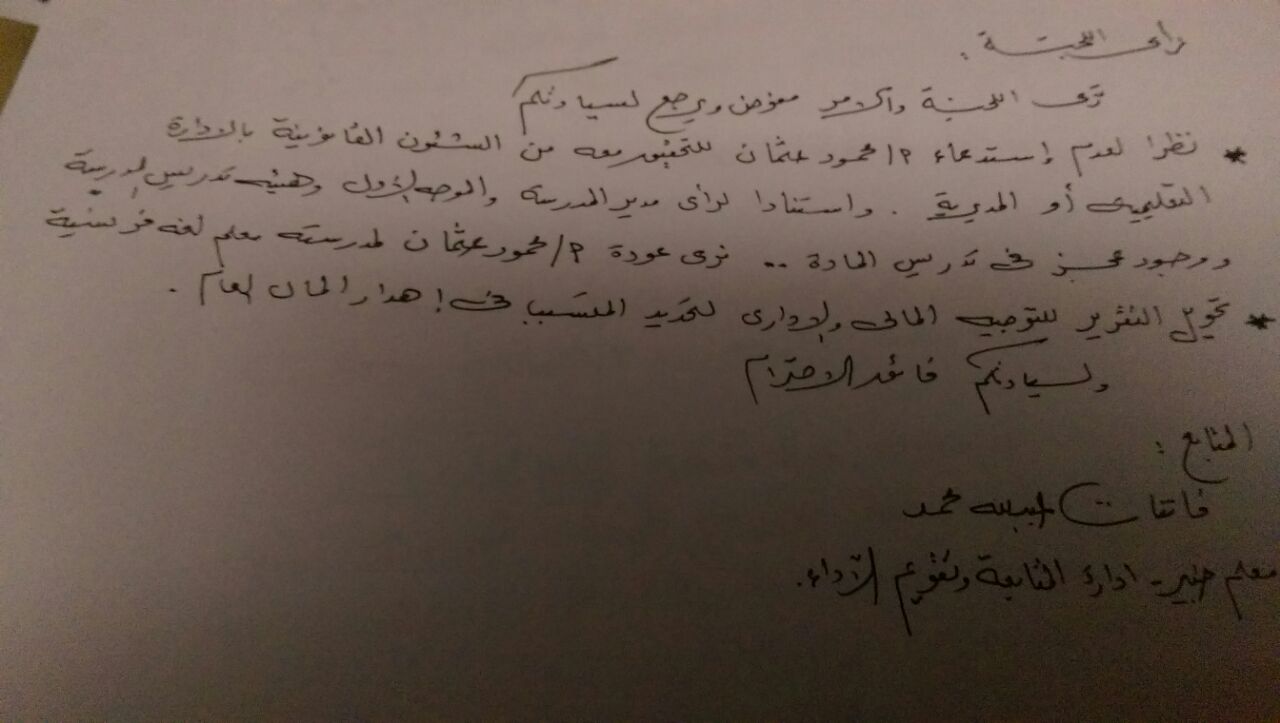 رأى اللجنة :
ترى اللجنة والامر مفوض ويرجع لسيادتكم
* نظرا لعدم إستدعاء م/ محمود عثمان للتحقيق معه من الشئون القانونية بالادارة
التعليمية أو المديرية . واستنادا لرأى مدير المدرسة والموجه الأول وهيئه تدريس المدرسة
ووجود عجز فى تدريس المادة .. نرى عودة م/ محمود عثمان لمدرسته معلم لغه فرنسية
* تحويل التقرير للتوجيه المالى والادارى لتحديد المتسبب فى إهدار المال العام .
ولسيادتكم فائق الاحترام
المتابع :
محمد
معلم خبير - ادارة المتابعة وتقويم الأداء .